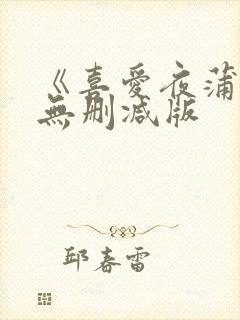 《喜愛夜蒲
無删减版
邱春雷